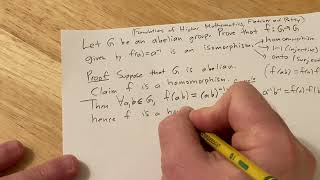 (Foundations of Higher Mathematics, Fletcher and Patty)
Let G be an abelian group. Prove that f: G→G
given by f(a)=a⁻¹ is an isomorphism.
homomorphism
1-1 (injective)
onto (surjective)
Proof Suppose that G is abelian.
Claim f is a homomorphism.
Then ∀a,b∈G, f(ab) = (ab)⁻¹ = a⁻¹b⁻¹ = f(a)·f(b)
hence f is a hom